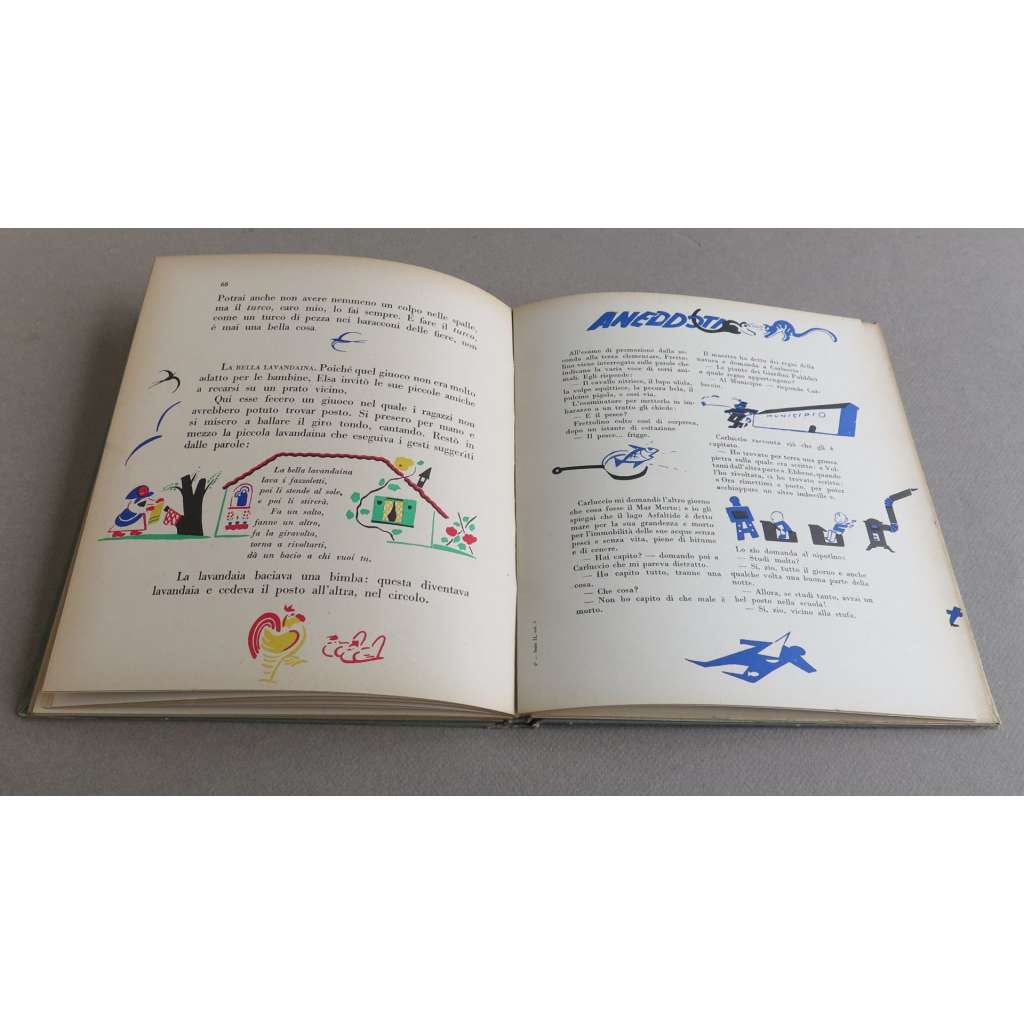 68
Potrai anche non avere nemmeno un colpo nelle spalle,
ma il turco, caro mio, lo fai sempre. E fare il turco,
come un turco di pezza nei baracconi delle fiere, non
è mai una bella cosa.
LA BELLA LAVANDAINA. Poiché quel giuoco non era molto
adatto per le bambine, Elsa invitò le sue piccole amiche
a recarsi su un prato vicino.
Qui esse fecero un giuoco nel quale i ragazzi non
avrebbero potuto trovar posto. Si presero per mano e
si misero a ballare il giro tondo, cantando. Restò in
mezzo la piccola lavandaina che eseguiva i gesti suggeriti
dalle parole:
La bella lavandaina
lava i fazzoletti,
poi li stende al sole,
e poi li stirerà.
Fa un salto,
fanne un altro,
fa la giravolta,
torna a rivoltarti,
dà un bacio a chi vuoi tu.
La lavandaia baciava una bimba: questa diventava
lavandaia e cedeva il posto all'altra, nel circolo.
ANEDDOTI
All'esame di promozione dalla se-
conda alla terza elementare, Fretto-
lino viene interrogato sulle parole che
indicano la varia voce di certi ani-
mali. Egli risponde:
— Il cavallo nitrisce, il lupo ulula,
la volpe squittisce, la pecora bela, il
pulcino pigola, e così via.
L'esaminatore per metterlo in im-
barazzo a un tratto gli chiede:
— E il pesce?
Frettolino colto così di sorpresa,
dopo un istante di esitazione
— Il pesce... frigge.
Carluccio mi domandò l'altro giorno
che cosa fosse il Mar Morto; e io gli
spiegai che il lago Asfaltide è detto
mare per la sua grandezza e morto
per l'immobilità delle sue acque senza
pesci e senza vita, piene di bitume
e di cenere.
— Hai capito? — domando poi a
Carluccio che mi pareva distratto.
— Ho capito tutto, tranne una
cosa.
— Che cosa?
— Non ho capito di che male è
morto.
Il maestro ha detto dei regni della
natura e domanda a Carluccio:
— Le piante dei Giardini Pubblici
a quale regno appartengono?
— Al Municipio — risponde Car-
luccio.
MUNICIPIO
Carluccio racconta ciò che gli è
capitato.
— Ho trovato per terra una grossa
pietra sulla quale era scritto: « Vol-
tami dall'altra parte » Ebbene, quando
l'ho rivoltata, ci ho trovato scritto:
« Ora rimettimi a posto, per poter
acchiappare un altro imbecille ».
Lo zio domanda al nipotino:
— Studi molto?
— Sì, zio, tutto il giorno e anche
qualche volta una buona parte della
notte.
— Allora, se studi tanto, avrai un
bel posto nella scuola!
— Sì, zio, vicino alla stufa.
t